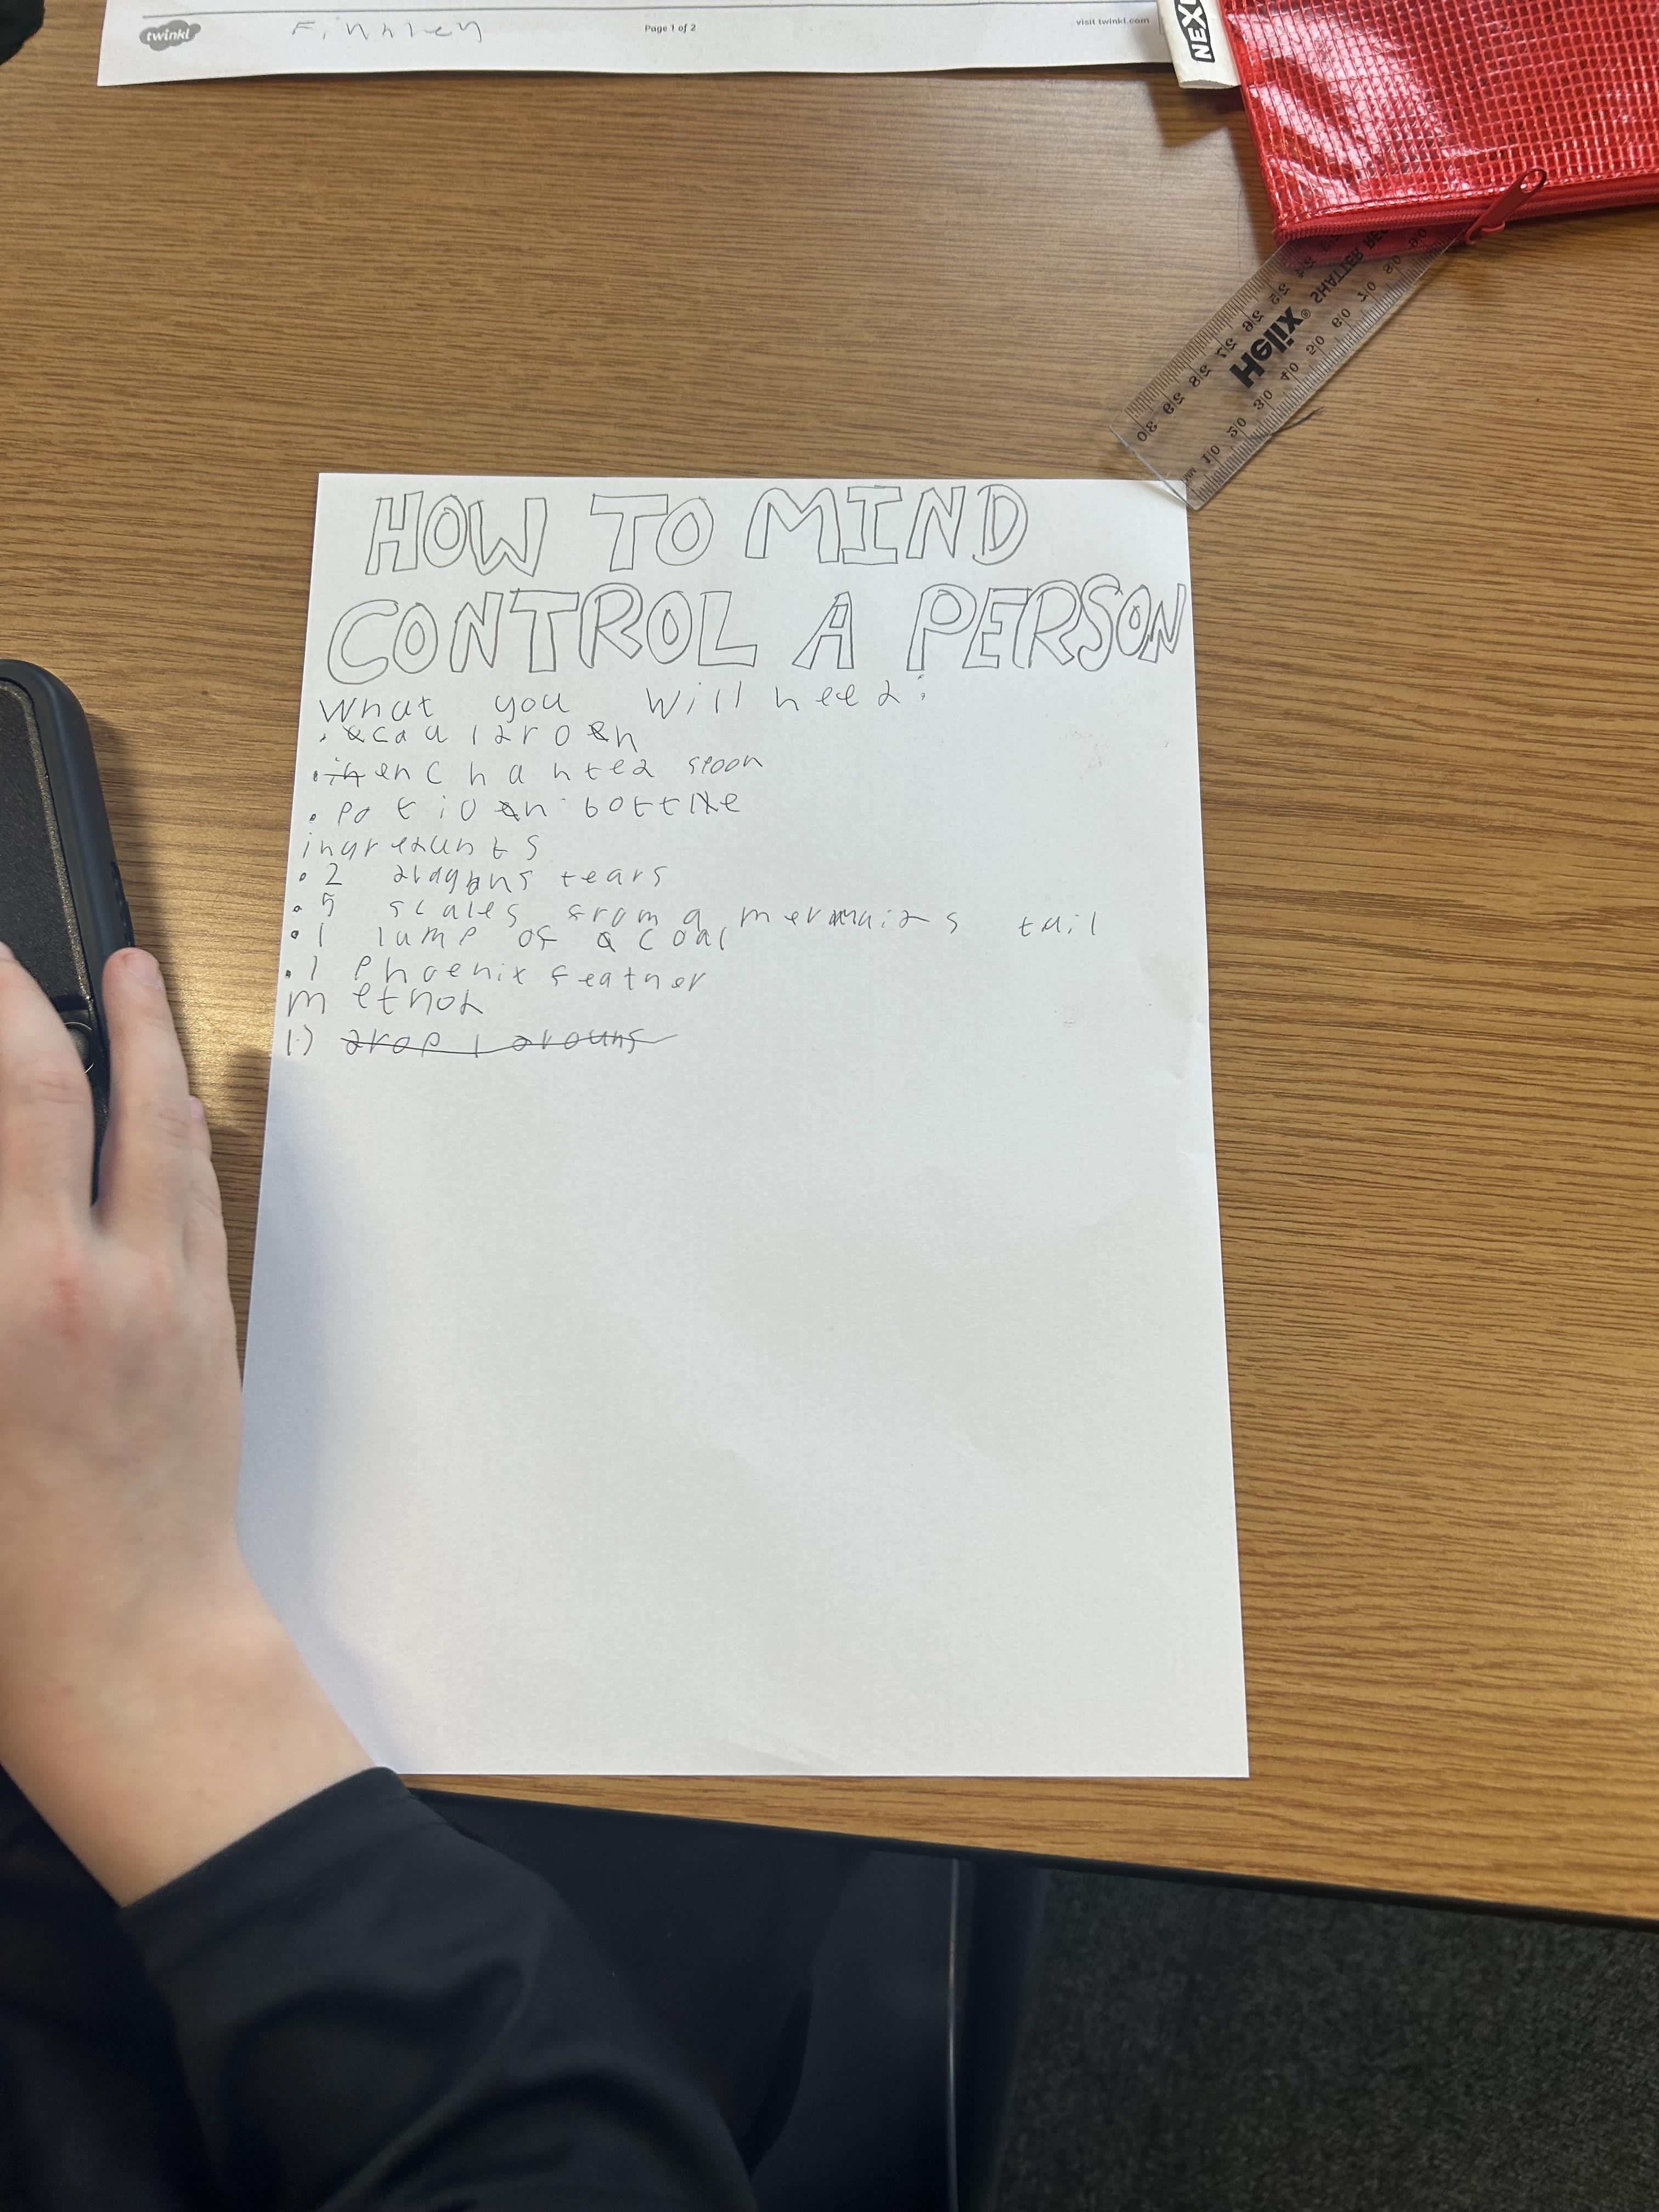 twinkl Finnley Page 1 of 2 visit twinkl.com
NEXT
Helix® SHATTER RES
HOW TO MIND
CONTROL A PERSON
What you will need:
• cauldroen
• enchanted spoon
• potion bottle
ingredunts
• 2 dragons tears
• 5 scales from a mermaids tail
• 1 lump of coal
• 1 Phoenix feather
method
1.) drop 1